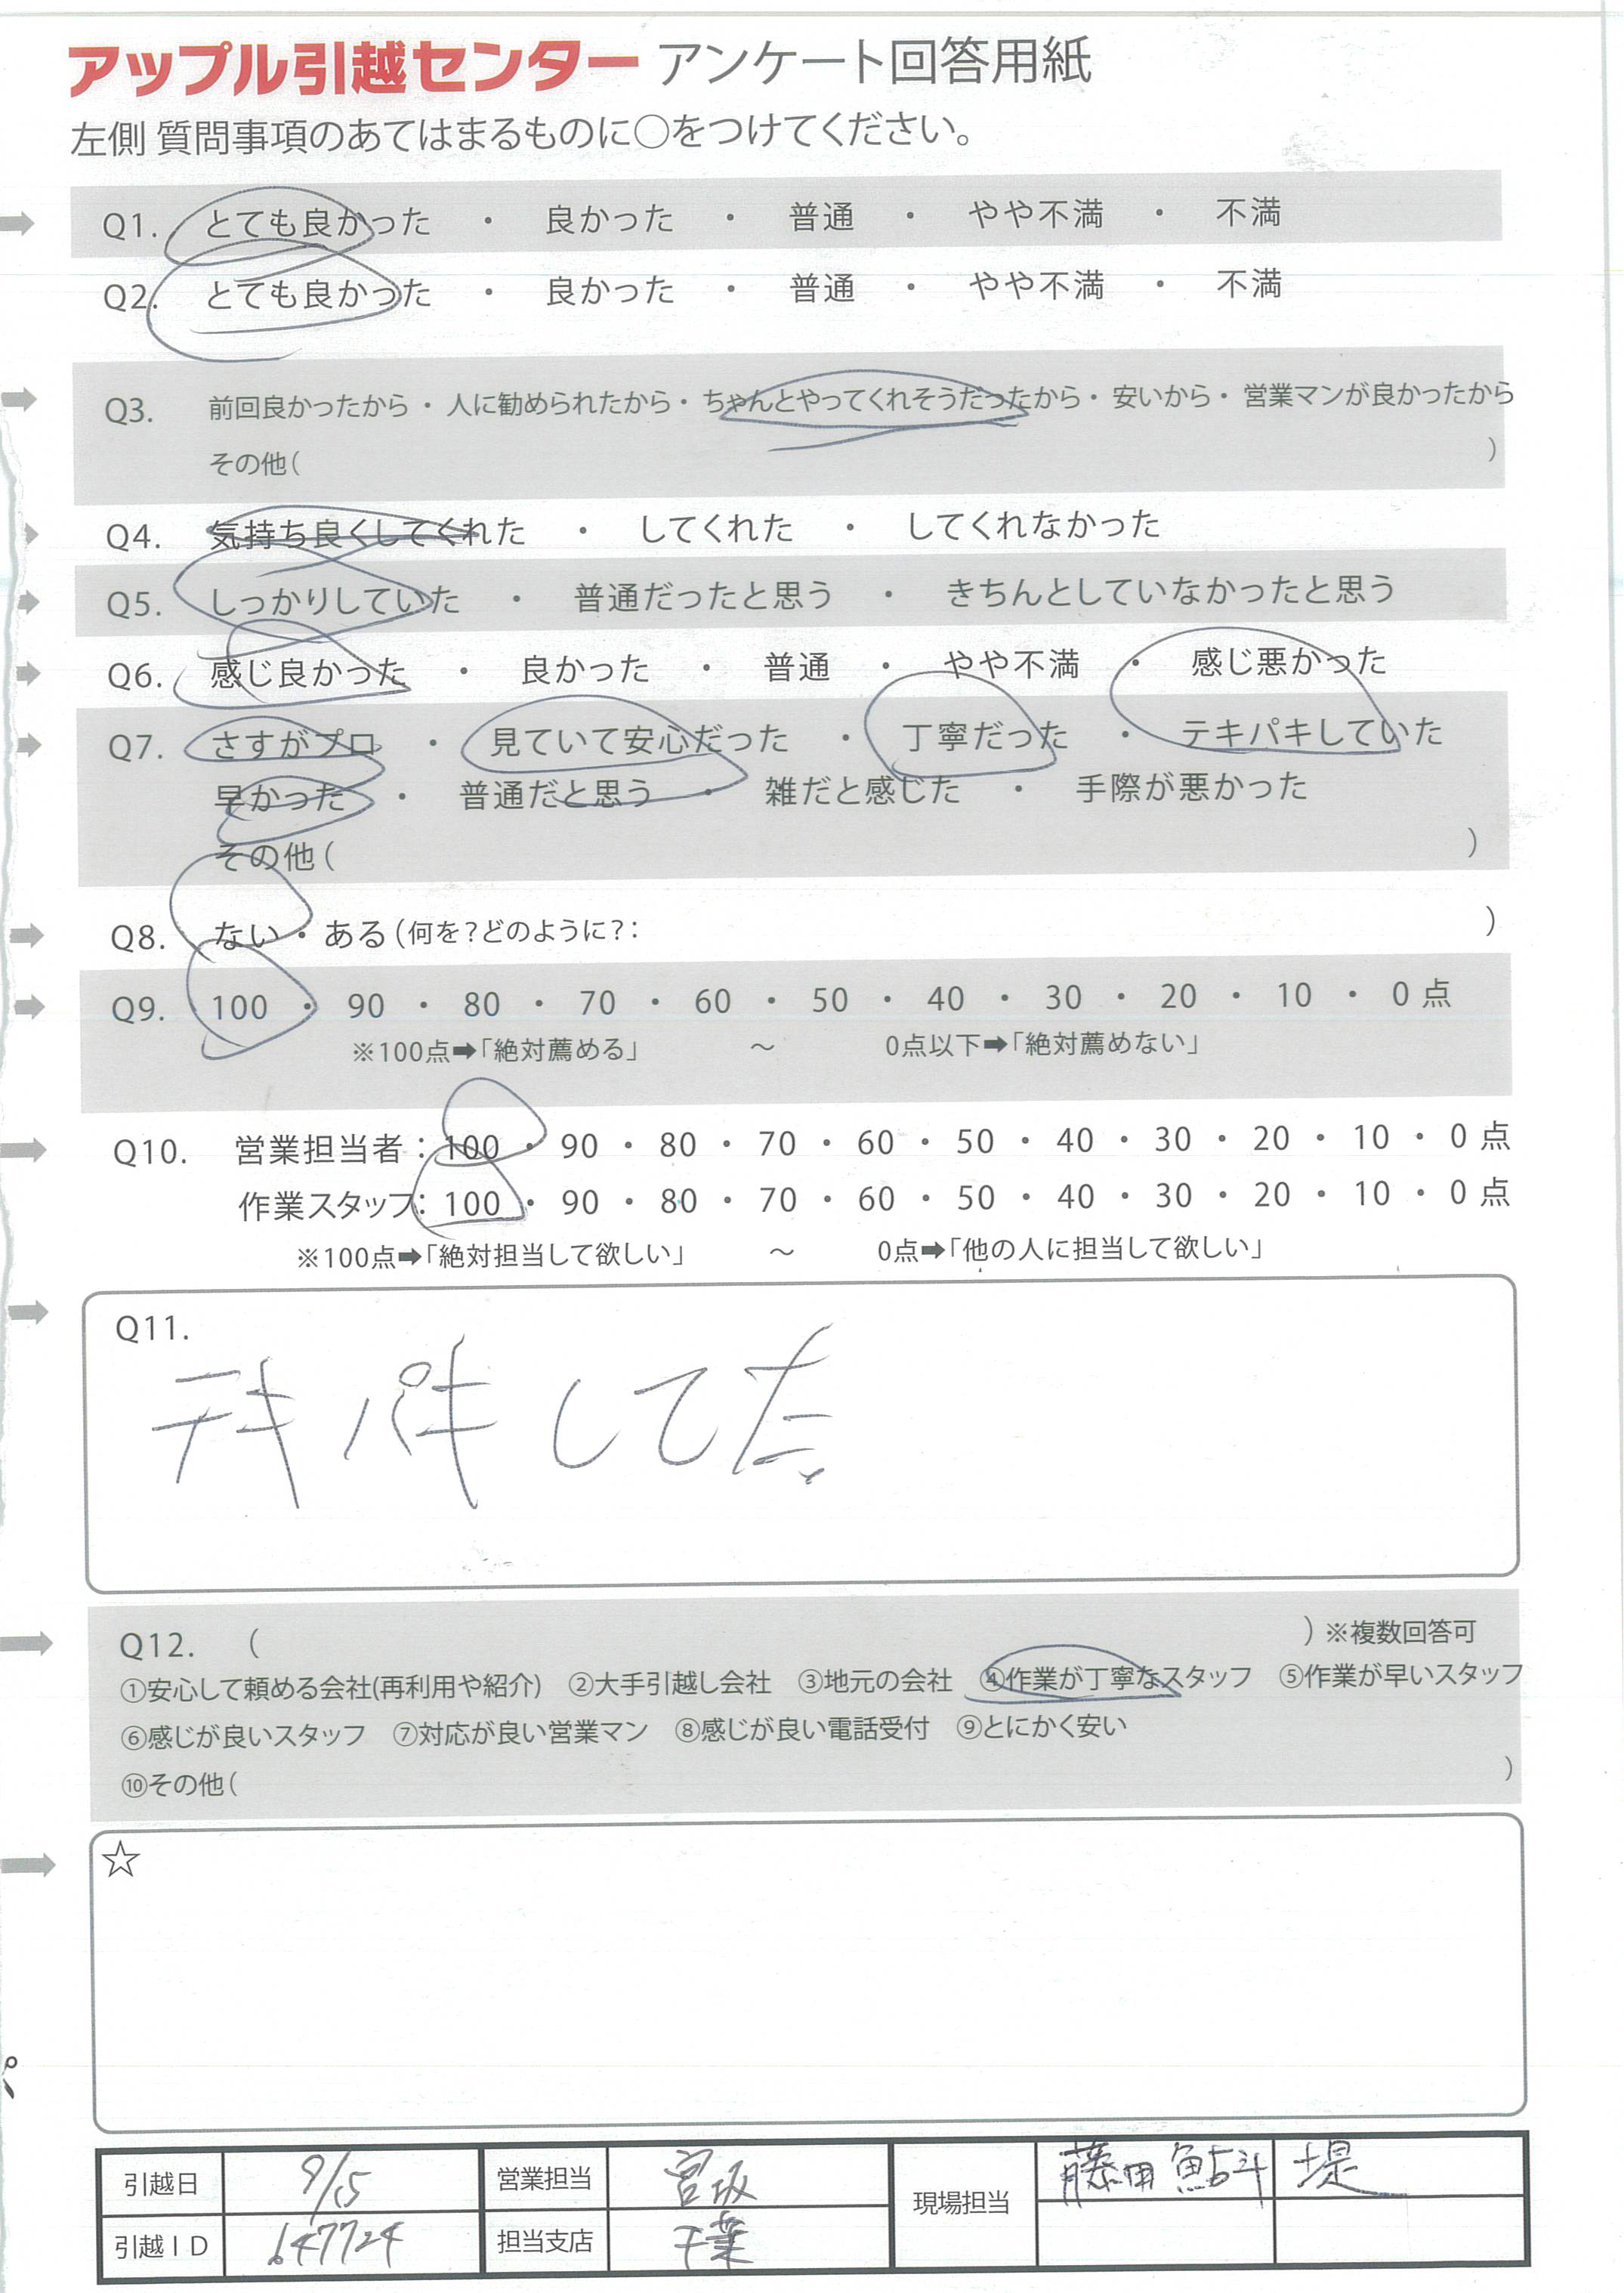 アップル引越センター アンケート回答用紙
左側 質問事項のあてはまるものに○をつけてください。
Q1. とても良かった ・ 良かった ・ 普通 ・ やや不満 ・ 不満
Q2. とても良かった ・ 良かった ・ 普通 ・ やや不満 ・ 不満
Q3. 前回良かったから ・ 人に勧められたから ・ ちゃんとやってくれそうだったから ・ 安いから ・ 営業マンが良かったから
その他( )
Q4. 気持ち良くしてくれた ・ してくれた ・ してくれなかった
Q5. しっかりしていた ・ 普通だったと思う ・ きちんとしていなかったと思う
Q6. 感じ良かった ・ 良かった ・ 普通 ・ やや不満 ・ 感じ悪かった
Q7. さすがプロ ・ 見ていて安心だった ・ 丁寧だった ・ テキパキしていた
早かった ・ 普通だと思う ・ 雑だと感じた ・ 手際が悪かった
その他( )
Q8. ない ・ ある(何を?どのように?: )
Q9. 100 ・ 90 ・ 80 ・ 70 ・ 60 ・ 50 ・ 40 ・ 30 ・ 20 ・ 10 ・ 0 点
※100点➡「絶対薦める」 ～ 0点以下➡「絶対薦めない」
Q10. 営業担当者：100 ・ 90 ・ 80 ・ 70 ・ 60 ・ 50 ・ 40 ・ 30 ・ 20 ・ 10 ・ 0 点
作業スタッフ：100 ・ 90 ・ 80 ・ 70 ・ 60 ・ 50 ・ 40 ・ 30 ・ 20 ・ 10 ・ 0 点
※100点➡「絶対担当して欲しい」 ～ 0点➡「他の人に担当して欲しい」
Q11.
テキパキしてた。
Q12. ( ) ※複数回答可
①安心して頼める会社(再利用や紹介) ②大手引越し会社 ③地元の会社 ④作業が丁寧なスタッフ ⑤作業が早いスタッフ
⑥感じが良いスタッフ ⑦対応が良い営業マン ⑧感じが良い電話受付 ⑨とにかく安い
⑩その他( )
☆
引越日 9/5 営業担当 宮坂 現場担当 藤田 鮎斗 堤
引越ID 647724 担当支店 千葉